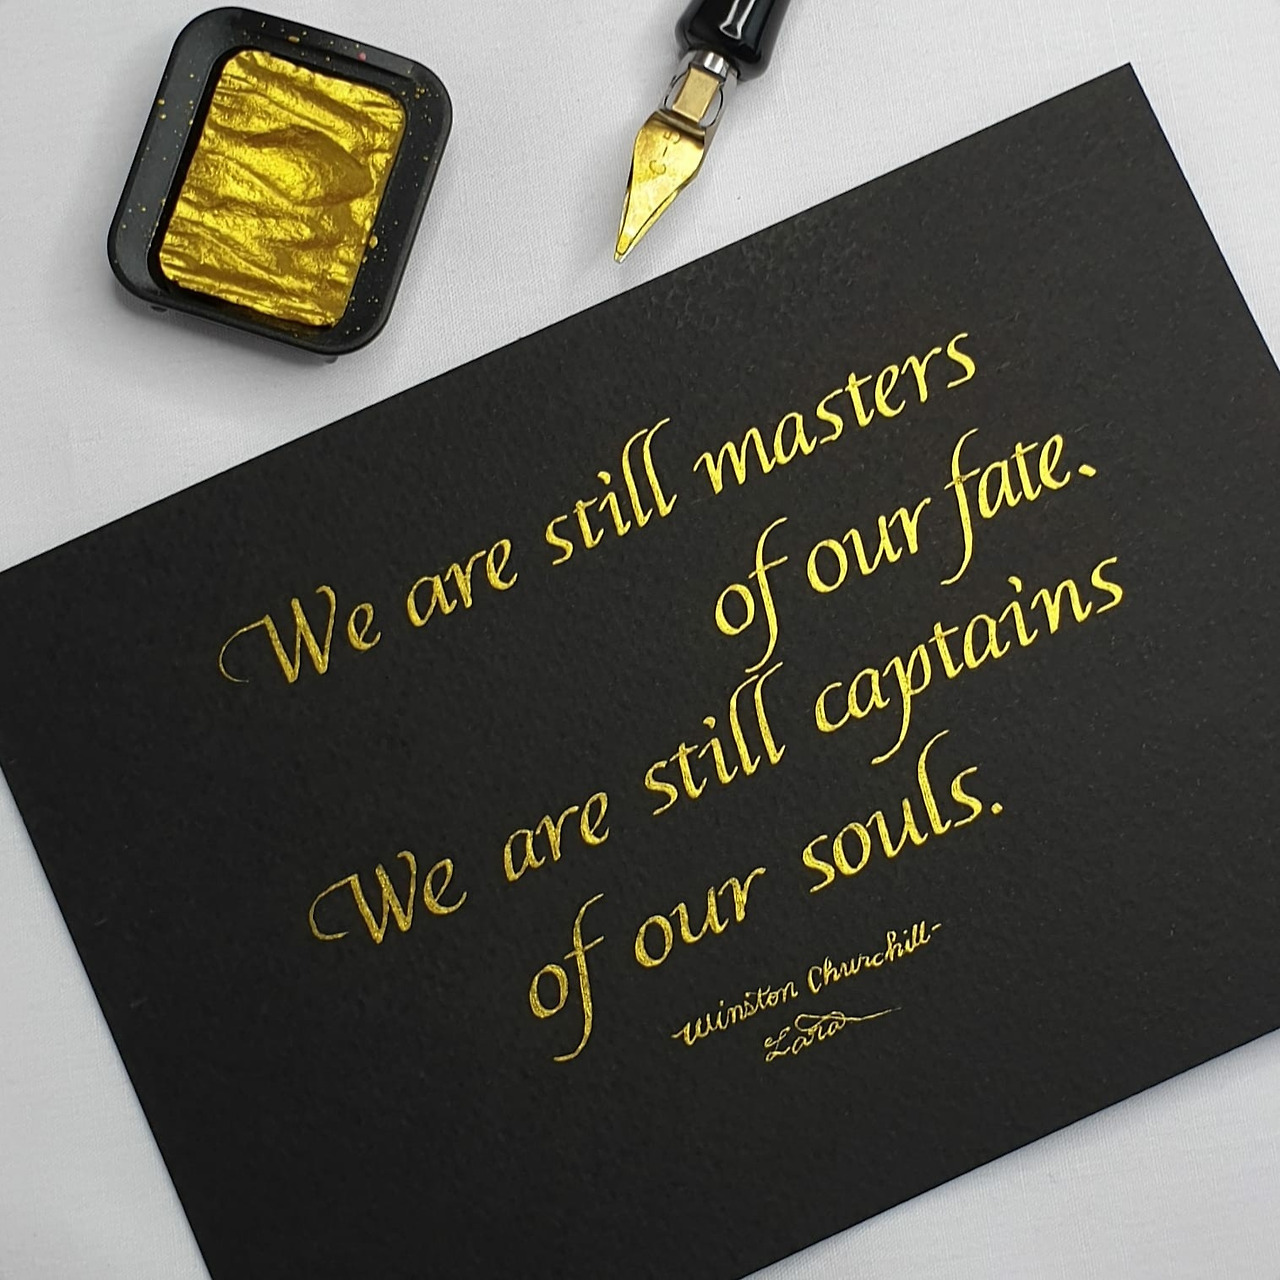 C-5
We are still masters
of our fate.
We are still captains
of our souls.
Winston Churchill-
Lara